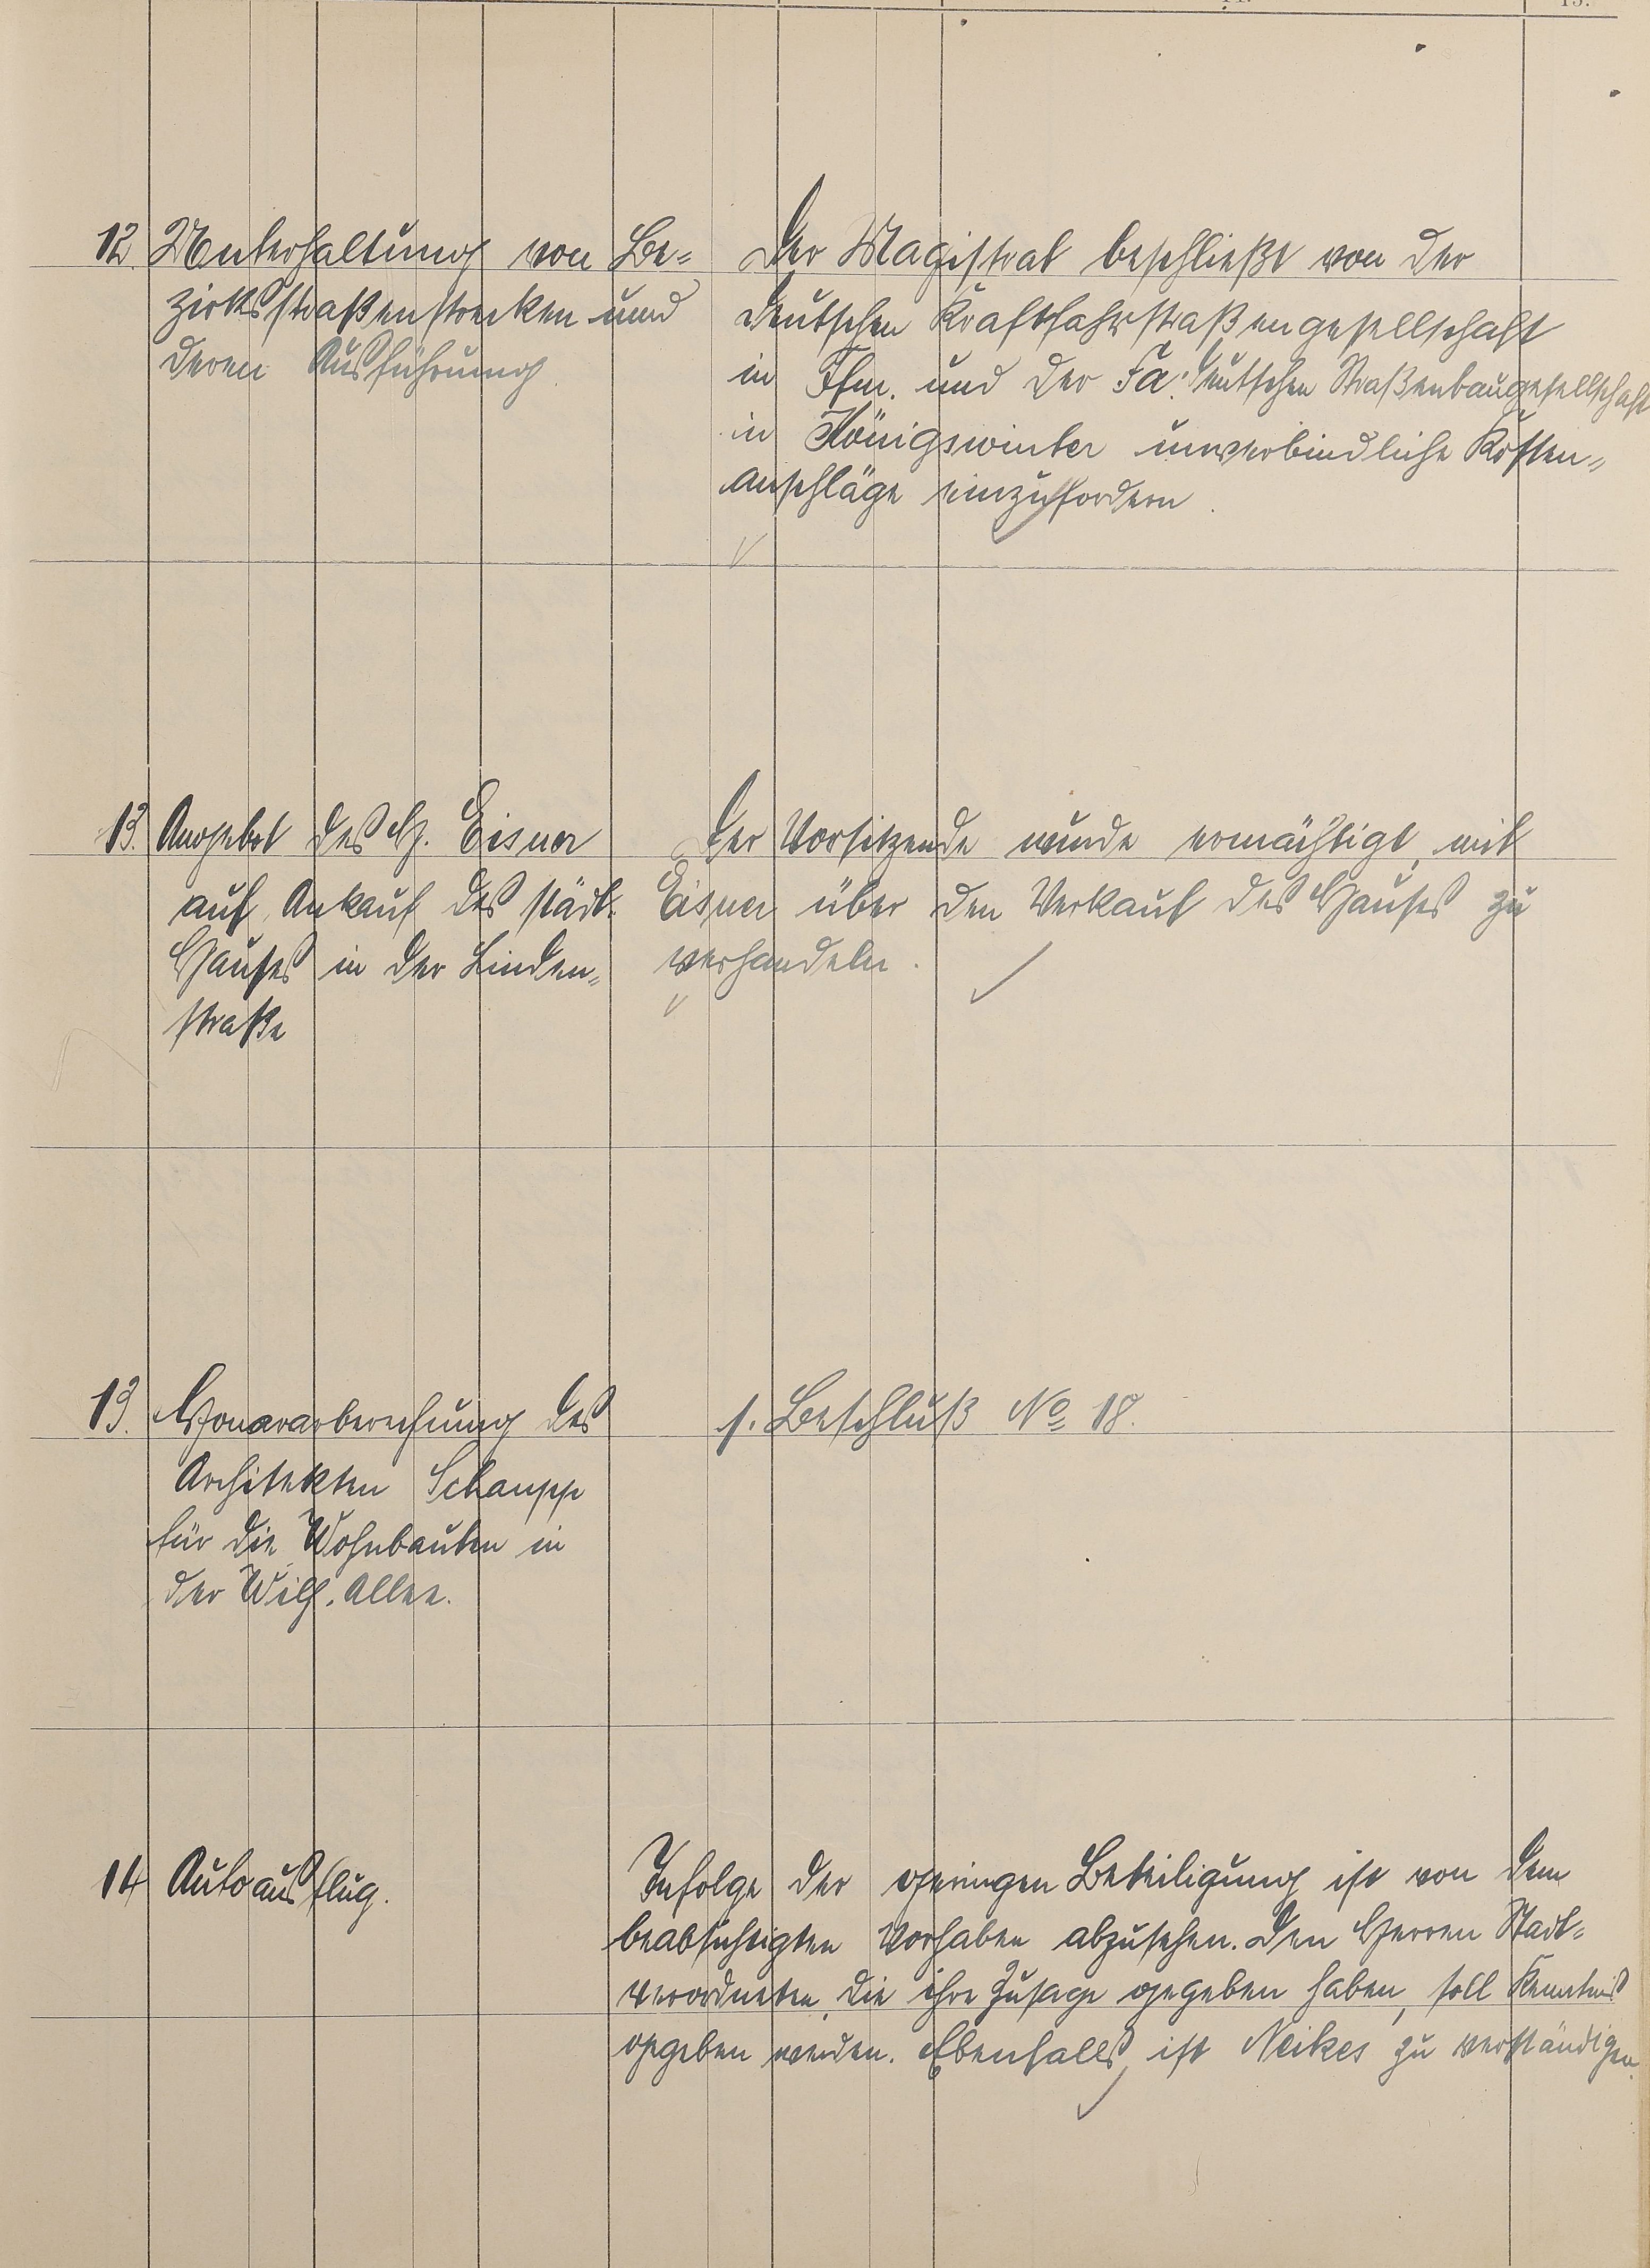 12. Unterhaltung von Be-
zirksstraßenstrecken und
deren Ausführung.
Der Magistrat beschließt von der
Deutschen Kraftfahrstraßengesellschaft
in Ffm. und der Fa. Deutschen Straßenbaugesellschaft
in Königswinter unverbindliche Kosten-
anschläge einzufordern.
13. Angebot des H. Eisner
auf Ankauf des städt.
Hauses in der Linden-
straße
Der Vorsitzende wurde ermächtigt, mit
Eisner über den Verkauf des Hauses zu
verhandeln.
13. Honorarberechnung des
Architekten Schaupp
für die Wohnbauten in
der Wilh. Allee.
s. Beschluß No 18.
14 Autoausflug.
Infolge der geringen Beteiligung ist von dem
beabsichtigten Vorhaben abzusehen. Den Herren Stadt-
verordneten, die ihre Zusage gegeben haben, soll Kenntnis
gegeben werden. Ebenfalls ist Neikes zu verständigen.